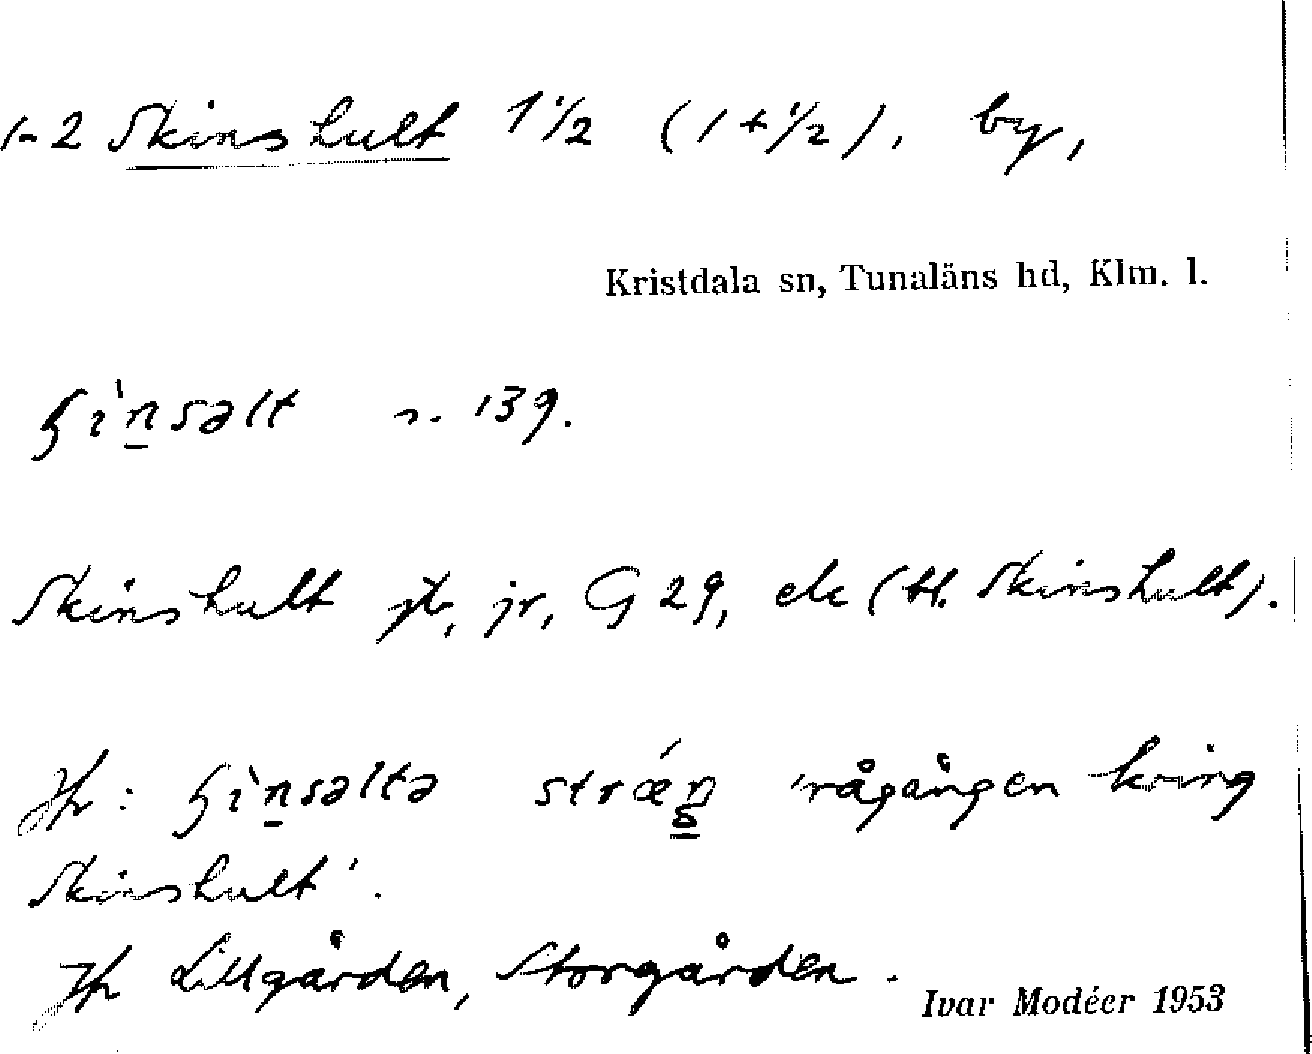 1-2 Skinshult 1 1/2 (1+1/2), by,
Kristdala sn, Tunaläns hd, Klm. l.
ɧìn̲səlt s. 139.
Skinshult jb, jr, G 29, ek (tl. Skinshult).
Hr: ɧìn̲səltə stræ̂ŋ 'rågången kring
Skinshult'.
Hr Lillgården, Storgården.
Ivar Modéer 1953